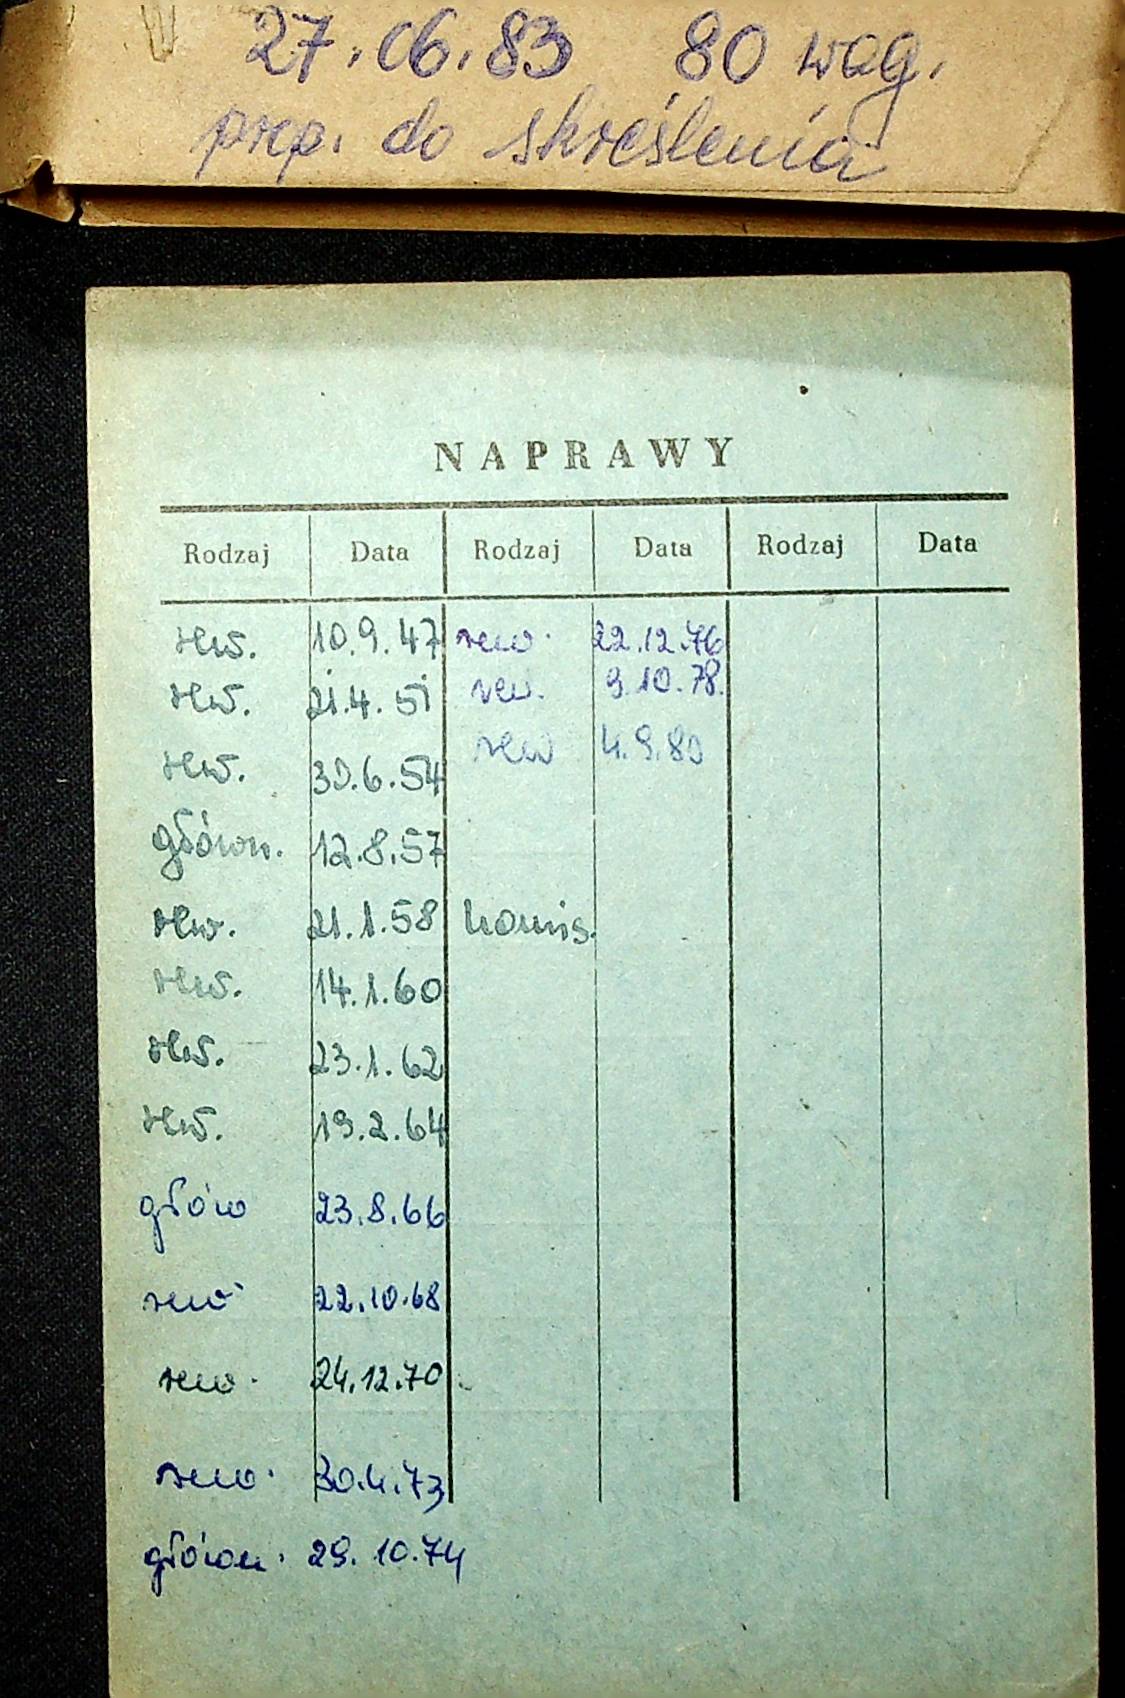 27.06.83 80 wag.
prep. do skreślenia
NAPRAWY
Rodzaj Data Rodzaj Data Rodzaj Data
rew. 10.9.47 rew. 22.12.76
rew. 21.4.51 rew. 9.10.78.
rew 4.9.80
rew. 30.6.54
główn. 12.8.57
rew. 21.1.58 komis.
rew. 14.1.60
rew. 23.1.62
rew. 19.2.64
głów 23.8.66
rew 22.10.68
rew. 24.12.70
rew. 30.4.73
główn. 29.10.74